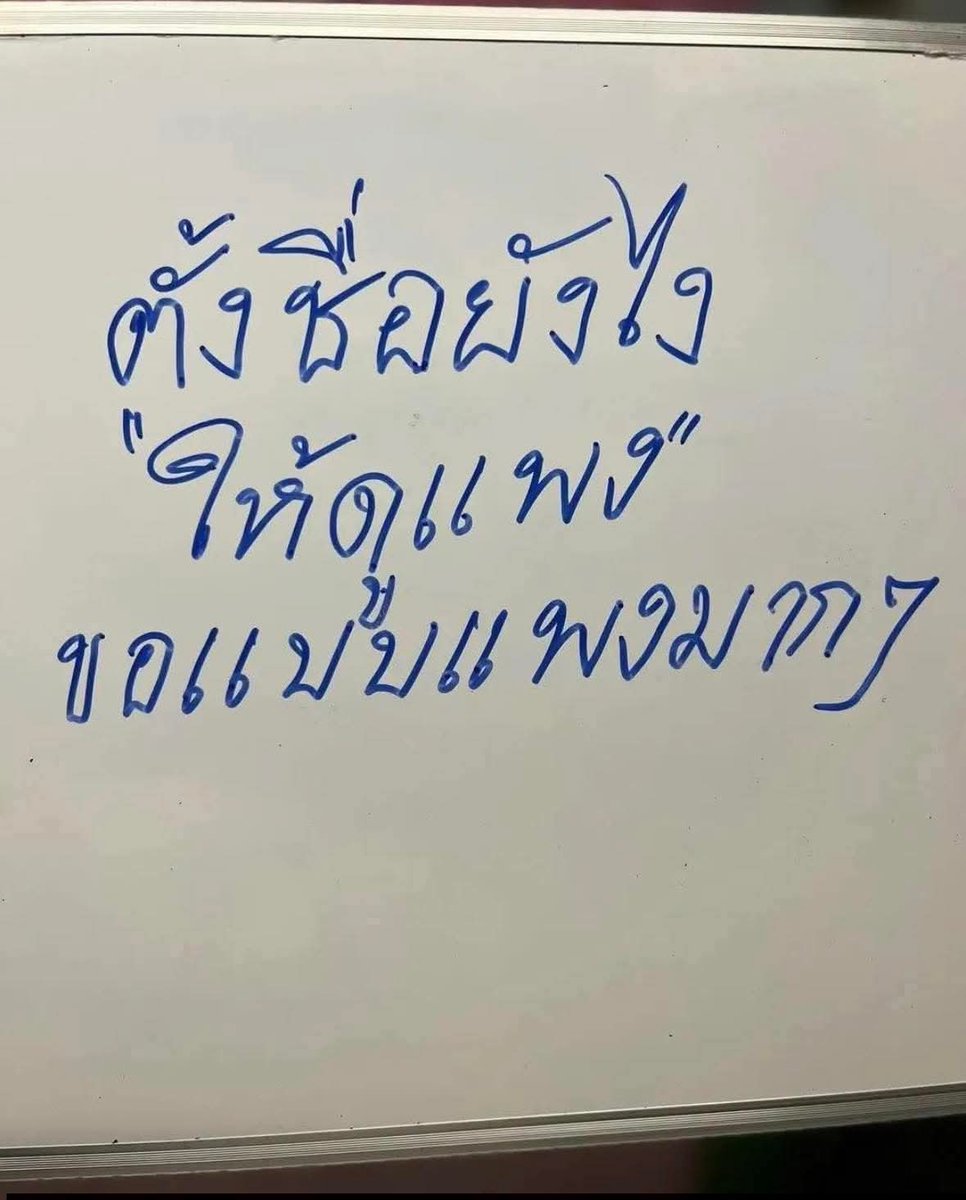 ตั้งชื่อยังไง
"ให้ดูแพง"
ขอแบบแพงมากๆ